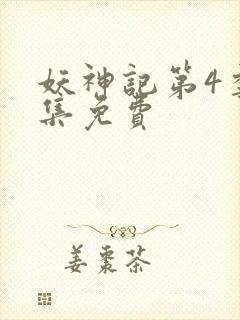 妖神記第4
集免費
姜棗茶